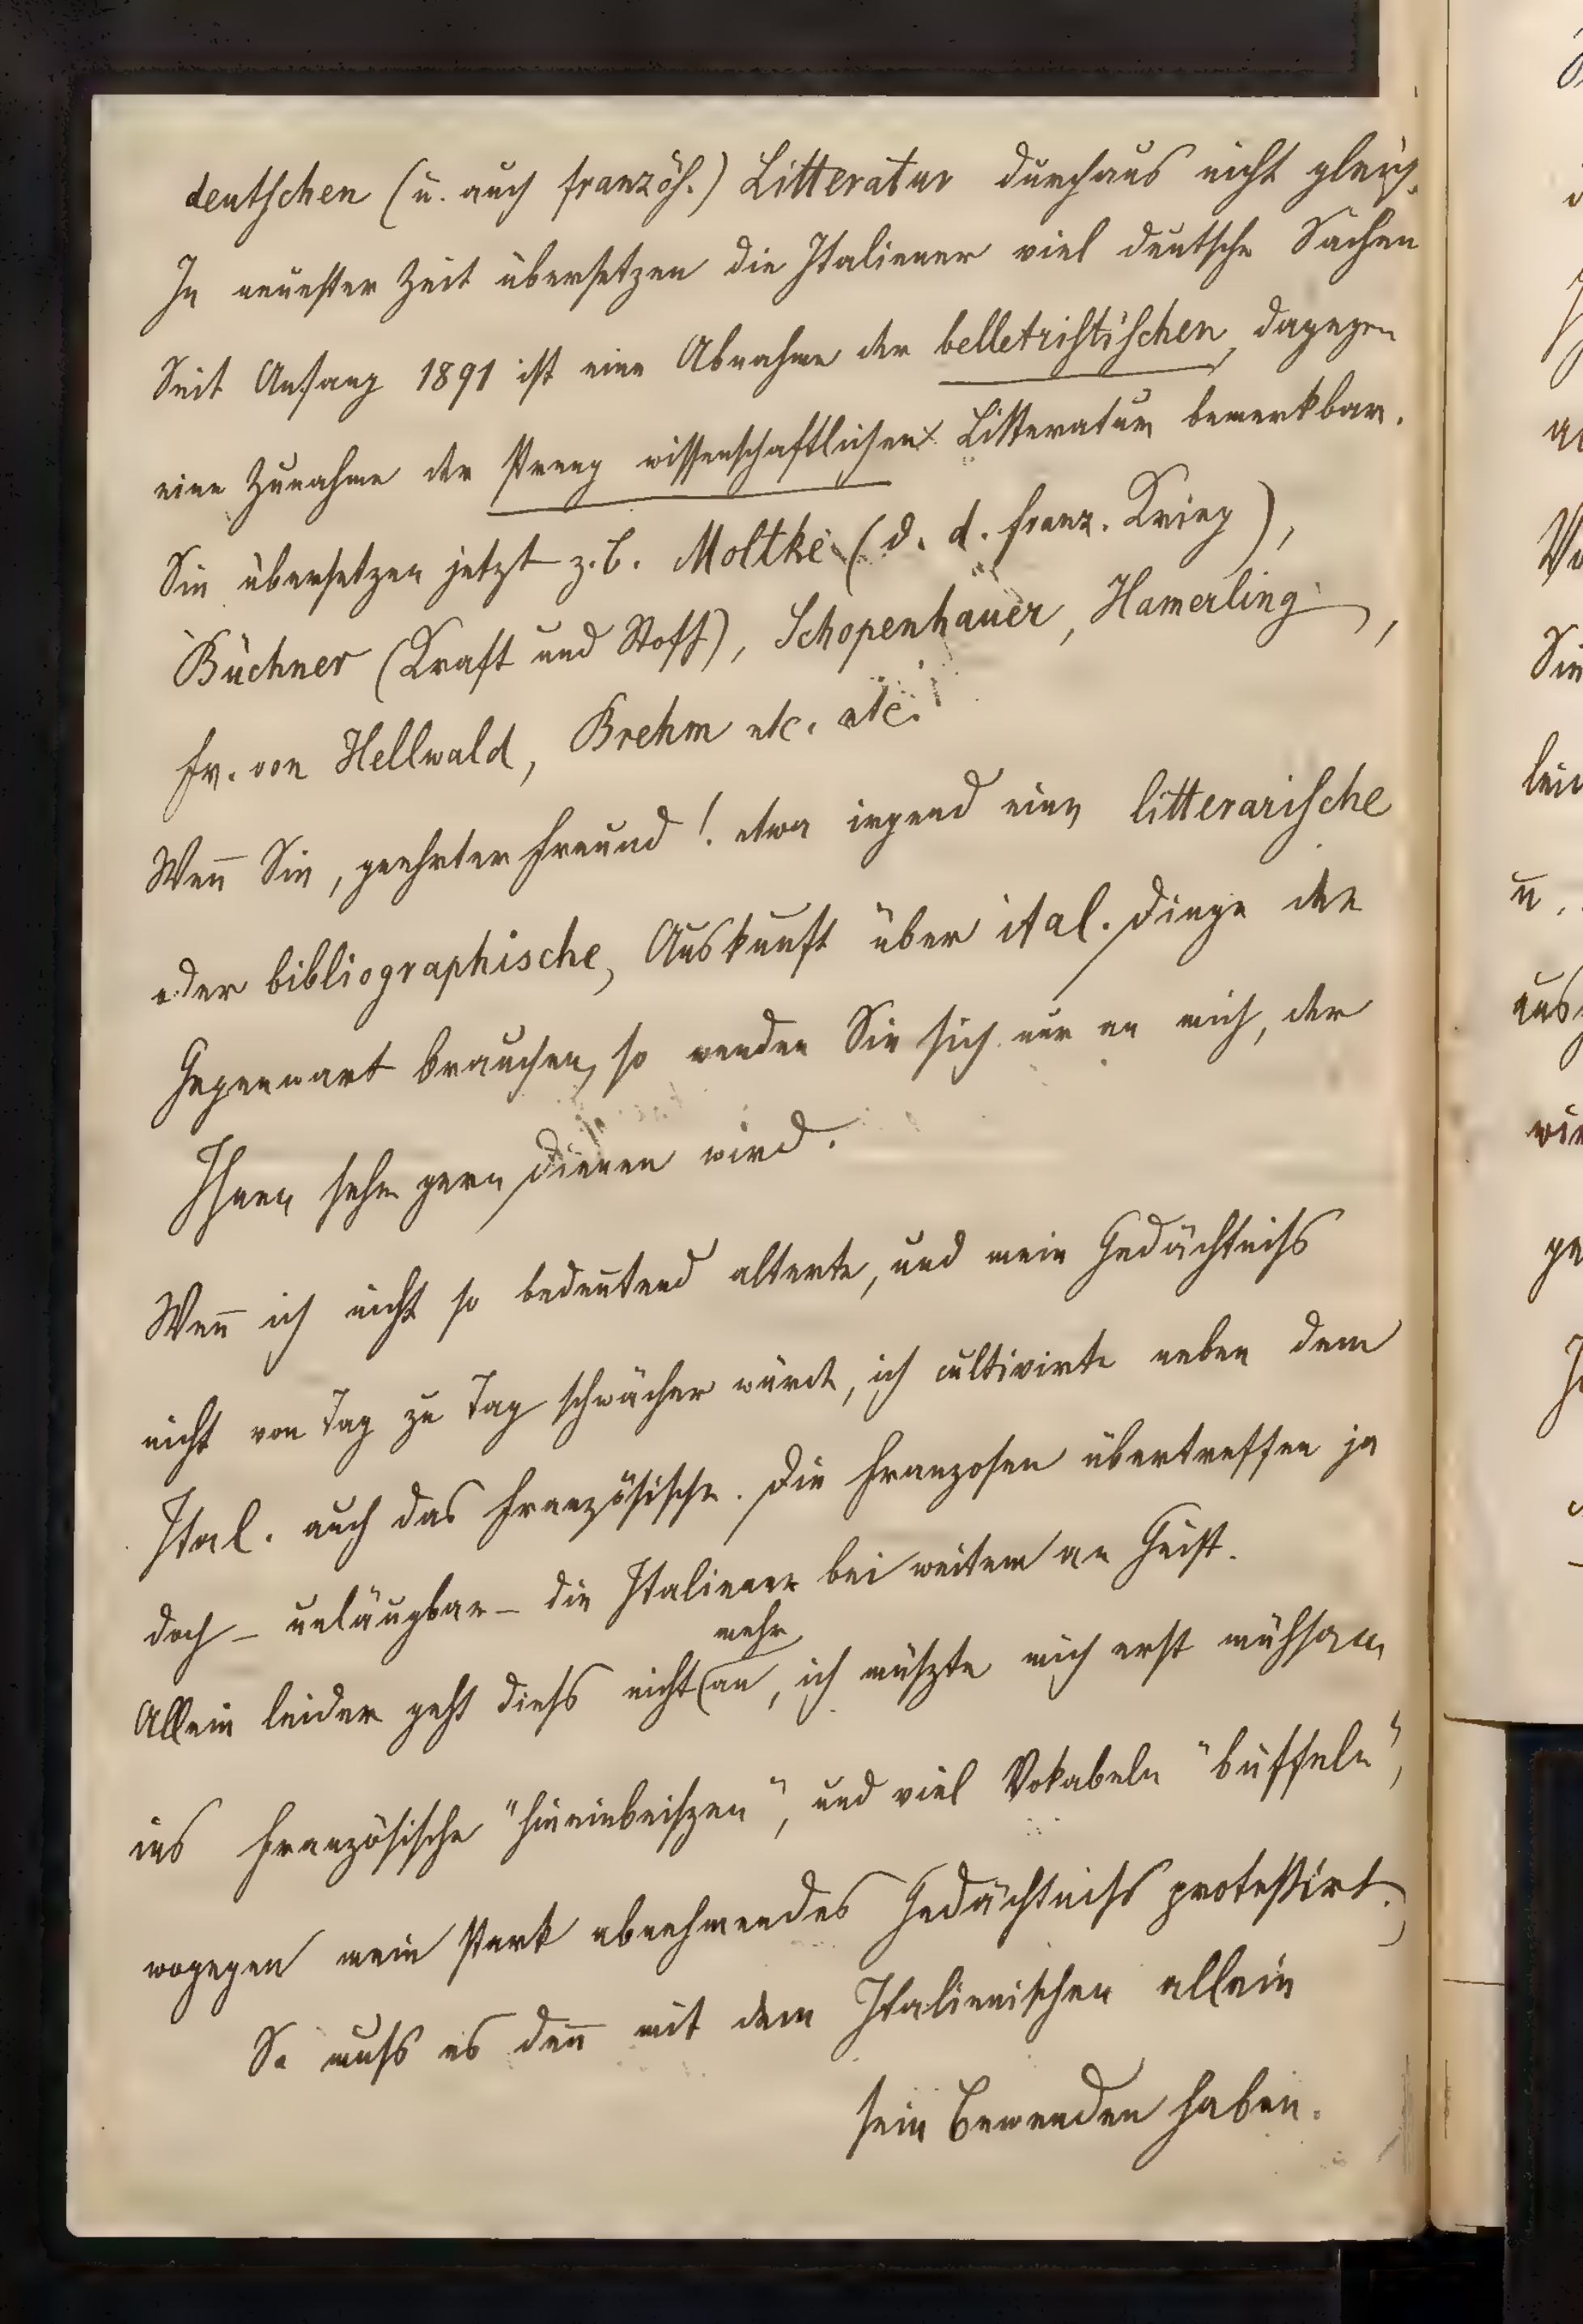 deutschen (u. auch französ.) Litteratur durchaus nicht gleich.
In neuester Zeit übersetzen die Italiener viel deutsche Sachen
Seit Anfang 1891 ist eine Abnahme der belletristischen, dagegen
eine Zunahme der streng wissenschaftlichen Litteratur bemerkbar.
Sie übersetzen jetzt z. b. Moltke (d. d. franz. Krieg),
Büchner (Kraft und Stoff), Schopenhauer, Hamerling,
Fr. von Hellwald, Brehm etc. etc.
Wen̄ Sie, geehrter Freund! etwa irgend eine litterarische
oder bibliographische, Auskunft über ital. Dinge der
Gegenwart brauchen, so wenden Sie sich nur an mich, der
Ihnen sehr gern dienen wird.
Wen̄ ich nicht so bedeutend alterte, und mein Gedächtniss
nicht von Tag zu Tag schwächer würde, ich cultivirte neben dem
Ital. auch das Französische. Die Franzosen übertreffen ja
doch – unläugbar – die Italiener bei weitem an Geist.
mehr
Allein leider geht diess nicht an, ich müszte mich erst mühsam
ins Französische "hineinbeiszen", und viel Vokabeln "büffeln",
wogegen mein stark abnehmendes Gedächtniss protestirt.
So muss es den̄ mit dem Italienischen allein
sein Bewenden haben.